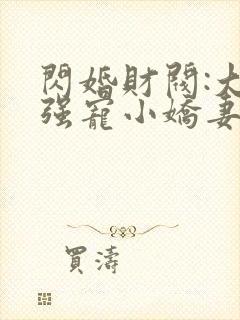 閃婚財閥:大
强寵小嬌妻
買濤